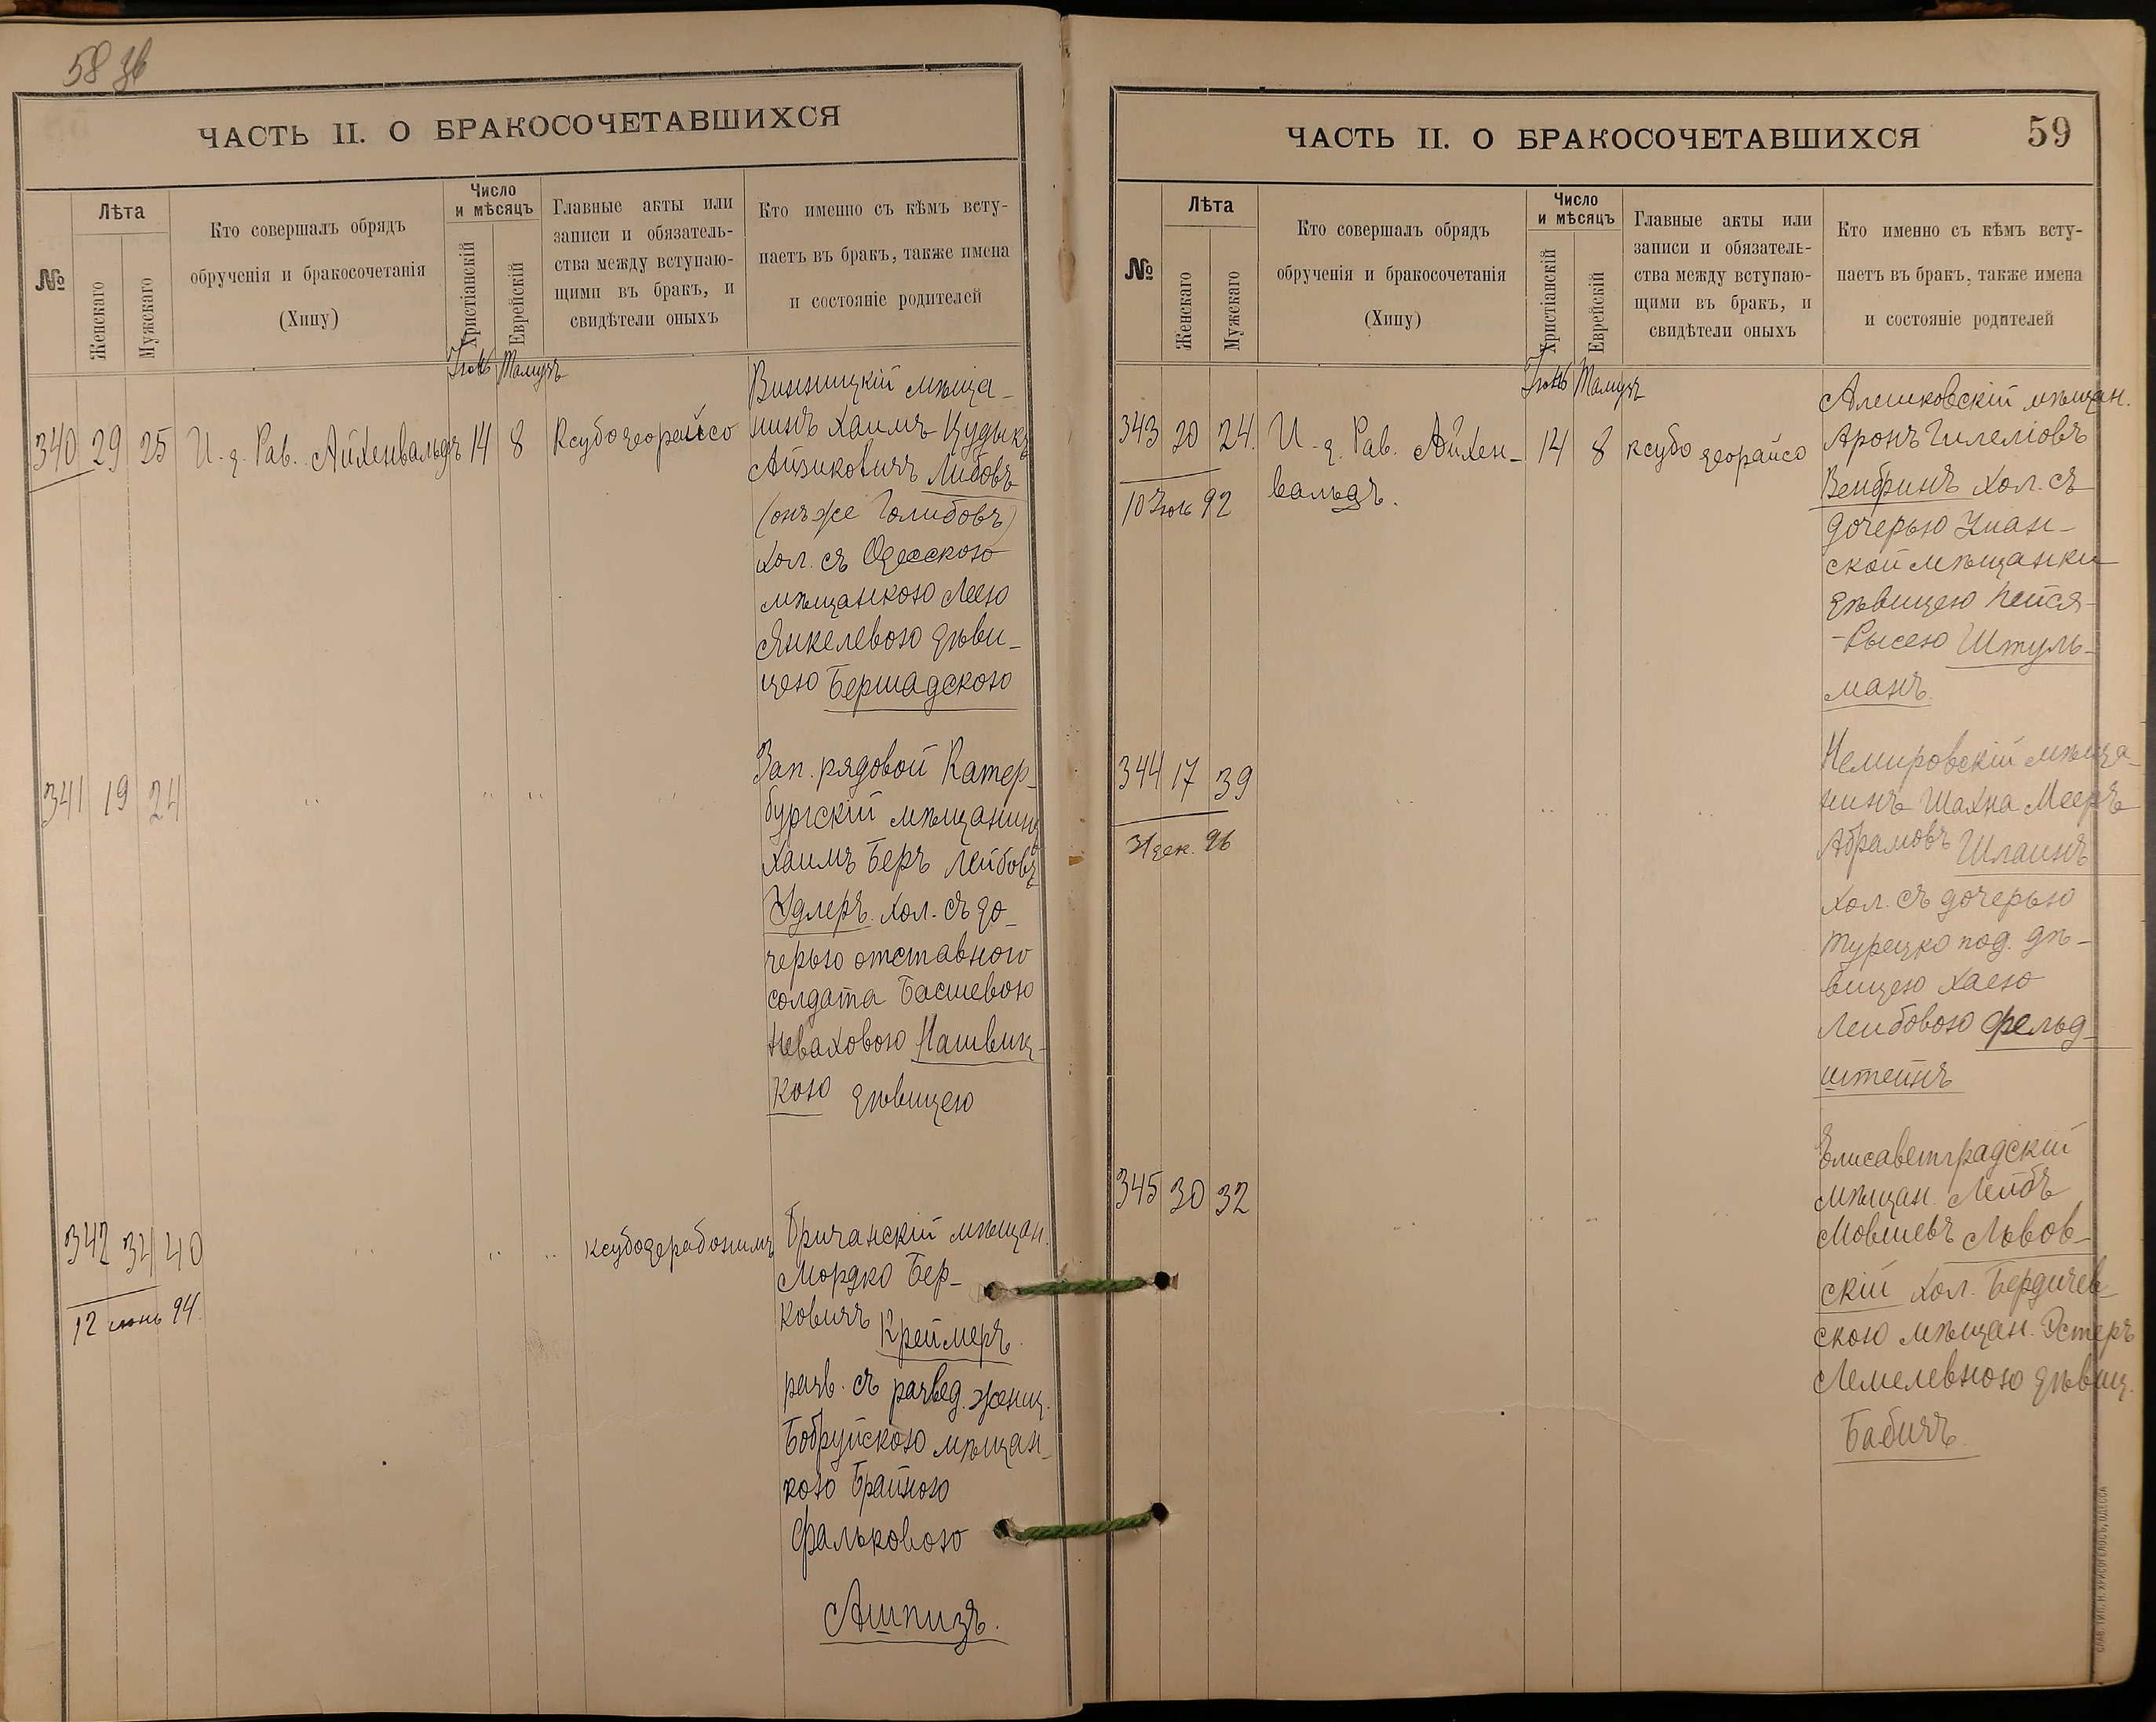 58 зв
ЧАСТЬ II. О БРАКОСОЧЕТАВШИХСЯ
№
Лѣта
Женскаго
Мужскаго
Кто совершалъ обрядъ
обрученія и бракосочетанія
(Хипу)
Число
и мѣсяцъ
Христіанскій
Еврейскій
Главные акты или
записи и обязатель-
ства между вступаю-
щими въ бракъ, и
свидѣтели оныхъ
Кто именно съ кѣмъ всту-
паетъ въ бракъ, также имена
и состояніе родителей
Іюнь Тамузъ
340 29 25 И. д. Рав. Айхенвальдъ 14 8 Ксубодеорайсо
Винницкій мѣща-
нинъ Хаимъ Цудыкъ
Айзиковичъ Либовъ
(онъ же Голибовъ)
хол. съ Одесскою
мѣщанкою Леею
Янкелевою дѣви-
цею Бершадскою
341 19 24 " " " "
Зап. рядовой Катер-
бургскій мѣщанинъ
Хаимъ Беръ Лейбовъ
Удлеръ хол. съ до-
черью отставного
солдата Басшевою
Неваховою Нашвиц-
кою дѣвицею
342 34 40 " " " ксубодерабонимъ
12 июнь 94.
Бричанскій мѣщан.
Мордко Бер-
ковичъ Креймеръ.
разв. съ развед. женщ.
Бобруйскою мѣщан-
кою Брайною
Фальковою
Ашпизъ.
ЧАСТЬ II. О БРАКОСОЧЕТАВШИХСЯ
59
№
Лѣта
Женскаго
Мужскаго
Кто совершалъ обрядъ
обрученія и бракосочетанія
(Хипу)
Число
и мѣсяцъ
Христіанскій
Еврейскій
Главные акты или
записи и обязатель-
ства между вступаю-
щими въ бракъ, и
свидѣтели оныхъ
Кто именно съ кѣмъ всту-
паетъ въ бракъ, также имена
и состояніе родителей
Іюнь Тамузъ
343 20 24. И. д. Рав. Айхен- 14 8 ксубо деорайсо
вальдъ.
10 Іюль 92
Алешковскій мѣщан.
Аронъ Гилеліовъ
Венбринъ хол. съ
дочерью Уман-
ской мѣщанки
дѣвицею Пейся-
-Рысею Штуль-
манъ.
344 17 39 " " " "
31 дек. 96
Немировскій мѣща-
нинъ Шахна Мееръ
Абрамовъ Шлаинъ
хол. съ дочерью
турецко под. дѣ-
вицею Хаею
Лейбовою Фельд-
штейнъ
345 30 32 " " " "
Елисаветградскій
мѣщан. Лейбъ
Мовшевъ Львов-
скій хол. Бердичев-
скою мѣщан. Эстеръ
Лемелевною дѣвиц.
Бабичъ.
СЛАВ. ТИП. Н. ХРИСОГЕЛОСЪ, ОДЕССА